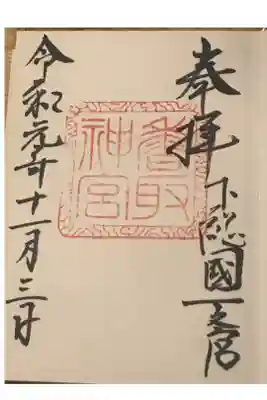 奉拝
下総國一之宮
香取神宮
令和元年十一月三日